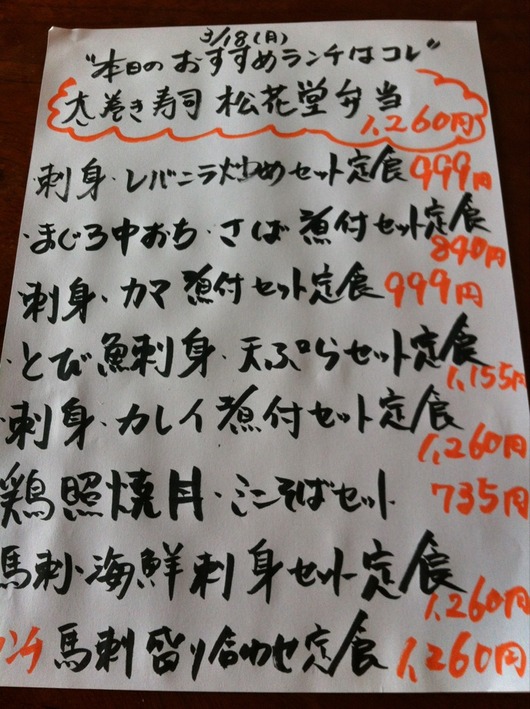 3/18(月)
"本日のおすすめランチはコレ"
太巻き寿司 松花堂弁当
1,260円
刺身・レバニラ炒めセット定食 999円
・まぐろ中おち・さば煮付セット定食
840円
刺身・カマ煮付セット定食 999円
・とび魚刺身・天ぷらセット定食
1,155円
・刺身・カレイ煮付セット定食
1,260円
鶏照焼丼・ミニそばセット 735円
馬刺・海鮮刺身セット定食
1,260円
ンチ 馬刺盛り合わせ定食 1,260円